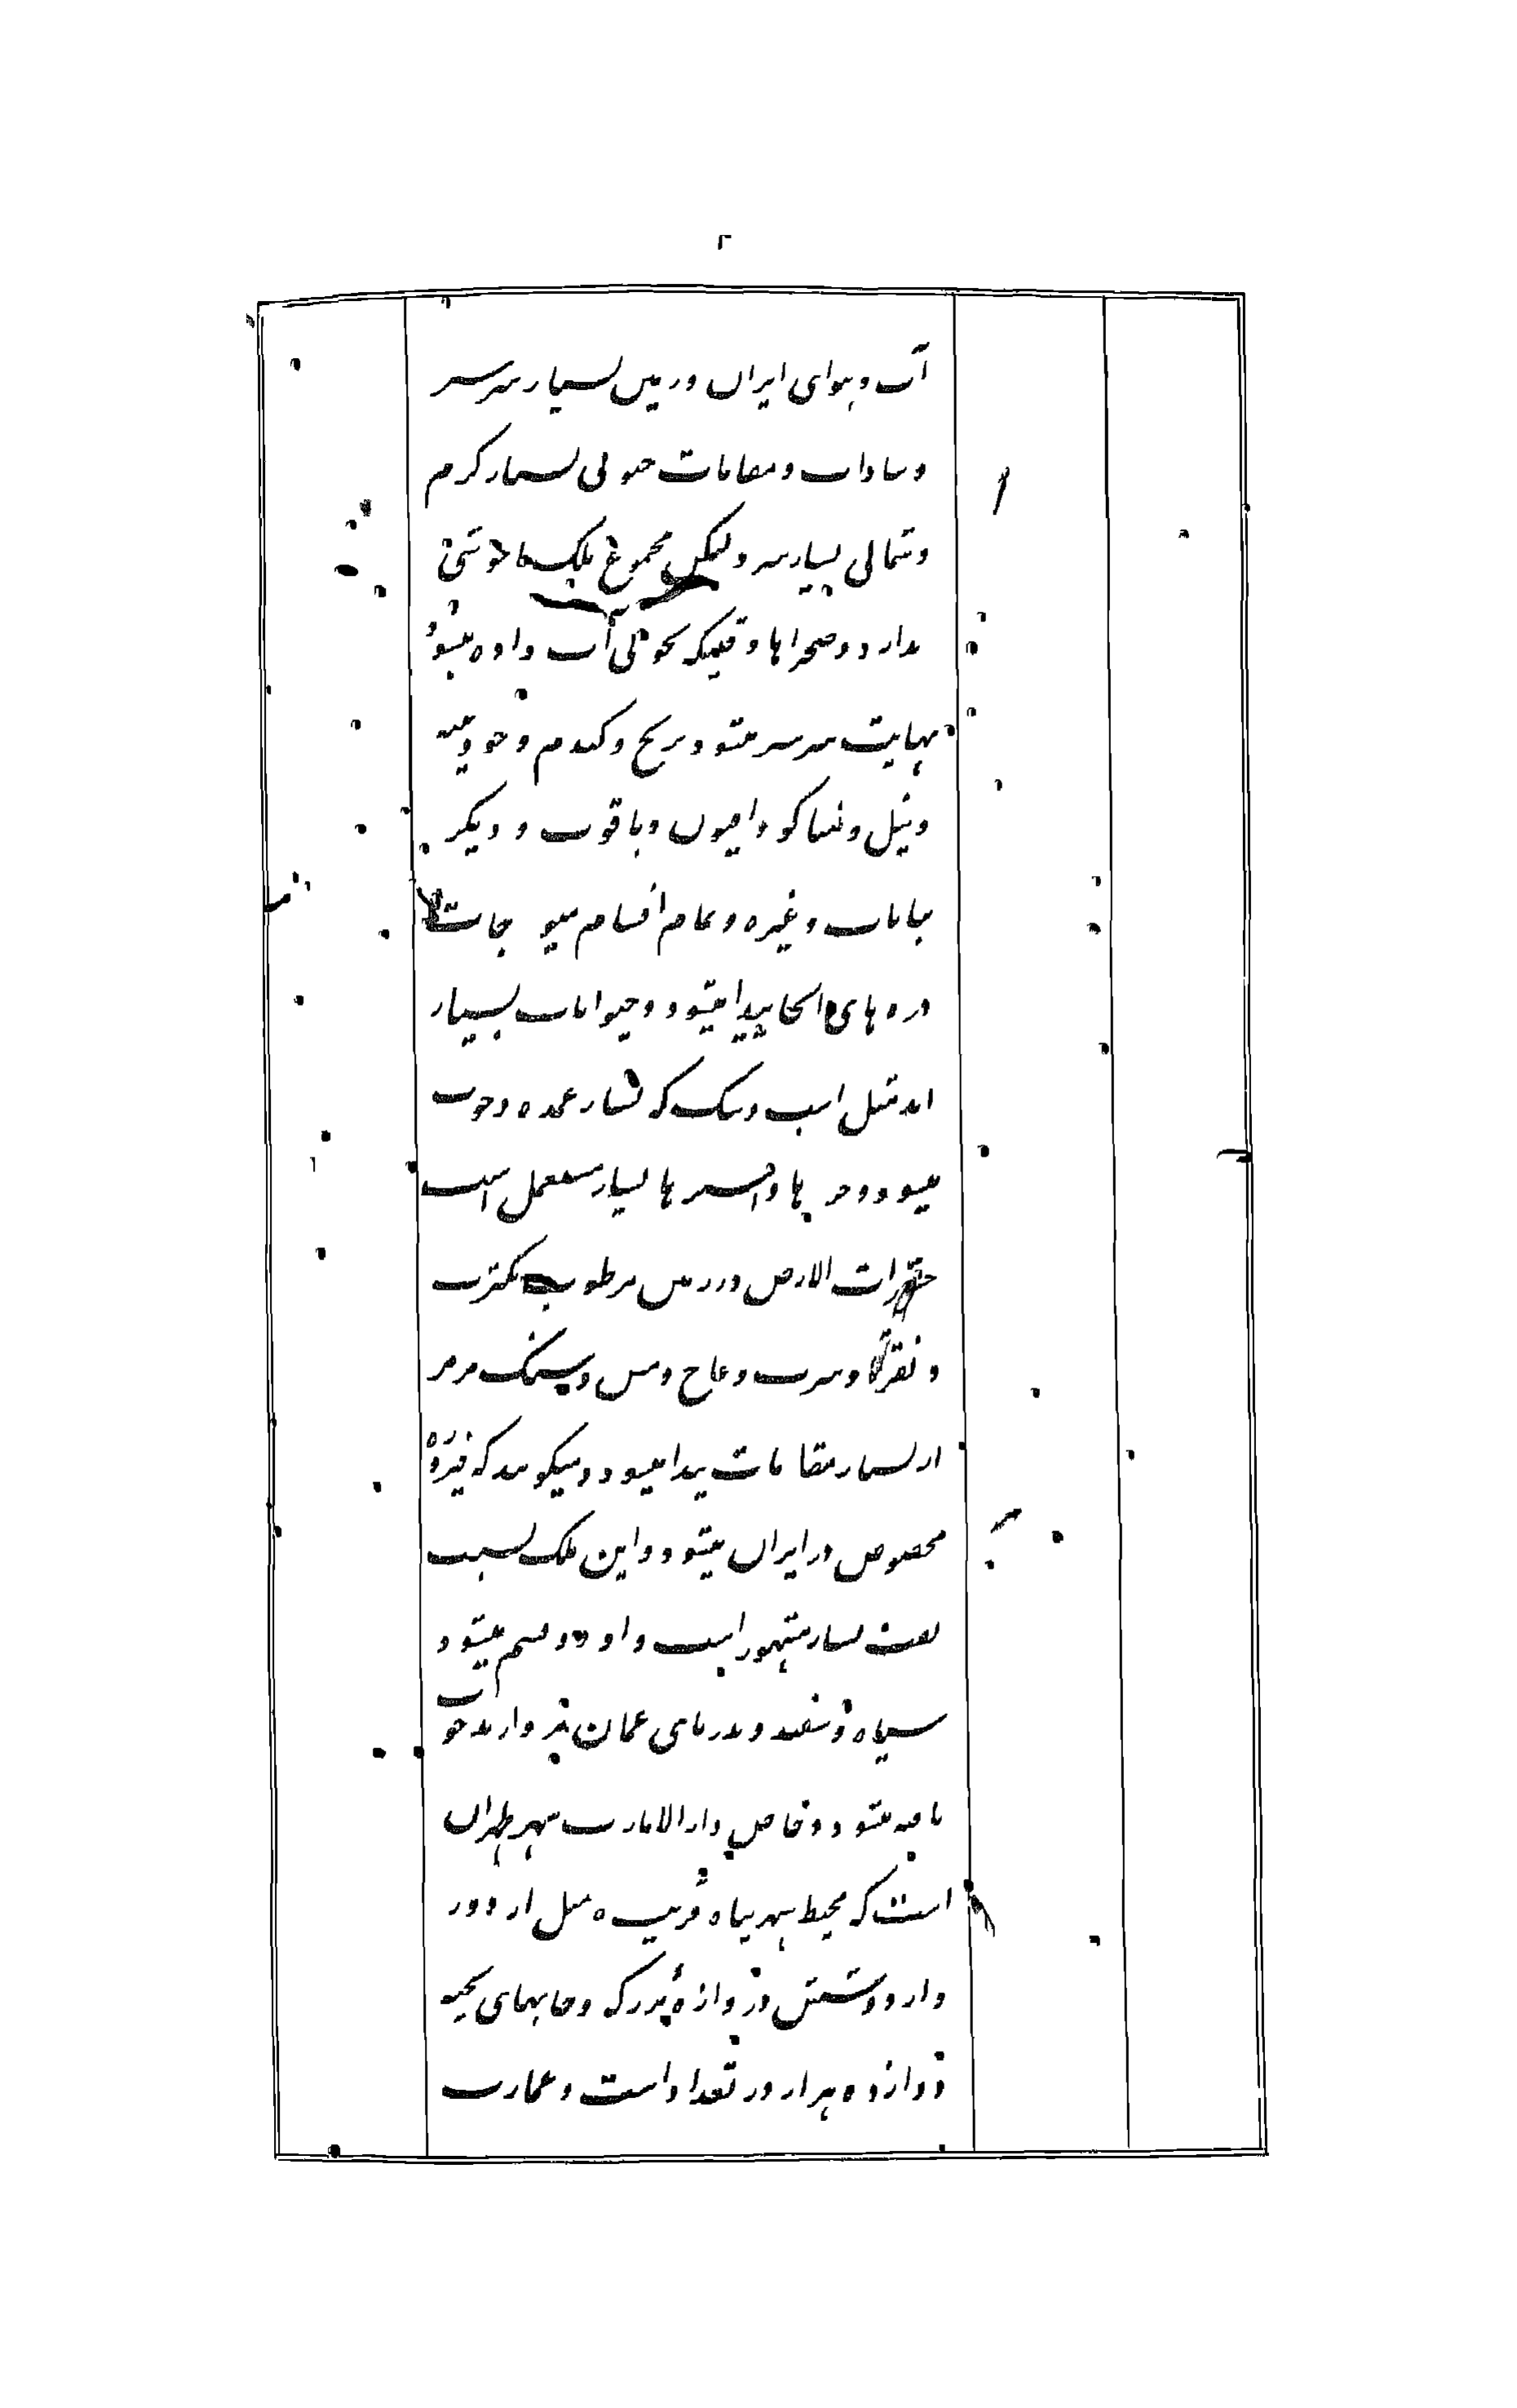 ۲
آب و هوای ایران و زمین بسیار سرسبز
و شاداب و مقامات جنوبی بسیار گرم
و شمالی بسیار سرد لیکن مجموع ملک ناخوشی
ندارد و صحراها وقتیکه بخوبی آب داده میشود
بهایت سرسبز میشود برنج و گندم و جو و پنبه
و نیل و تنباکو و افیون و یاقوت و دیگر
نباتات وغیره و تمام اقسام میوه جات
دره های انجا پیدا میشود و حیوانات بسیار
اند مثل اسب و سگ که بسیار عمده و خوب
میشود و خرها و استرها بسیار مستعمل است
حشرات الارض در زمین مرطوب بکثرت
و نقره و سرب و عاج و مس و سنگ مرمر
از بسیار مقامات پیدا میشود و میگویند که فیروزه
مخصوص در ایران میشود و این ملک بسبب
نفت بسیار مشهور است و او دو قسم میشود
سیاه و سفید و در دریای عمان نیز مروارید خوب
یافته میشود و خاص دارالامارت شهر طهران
است که محیط شهر پناه قریب ه میل از دور
دارد و مشتمل دروازهٔ بزرگ و خانهای
دوازده هزار در تعداد است و عمارت